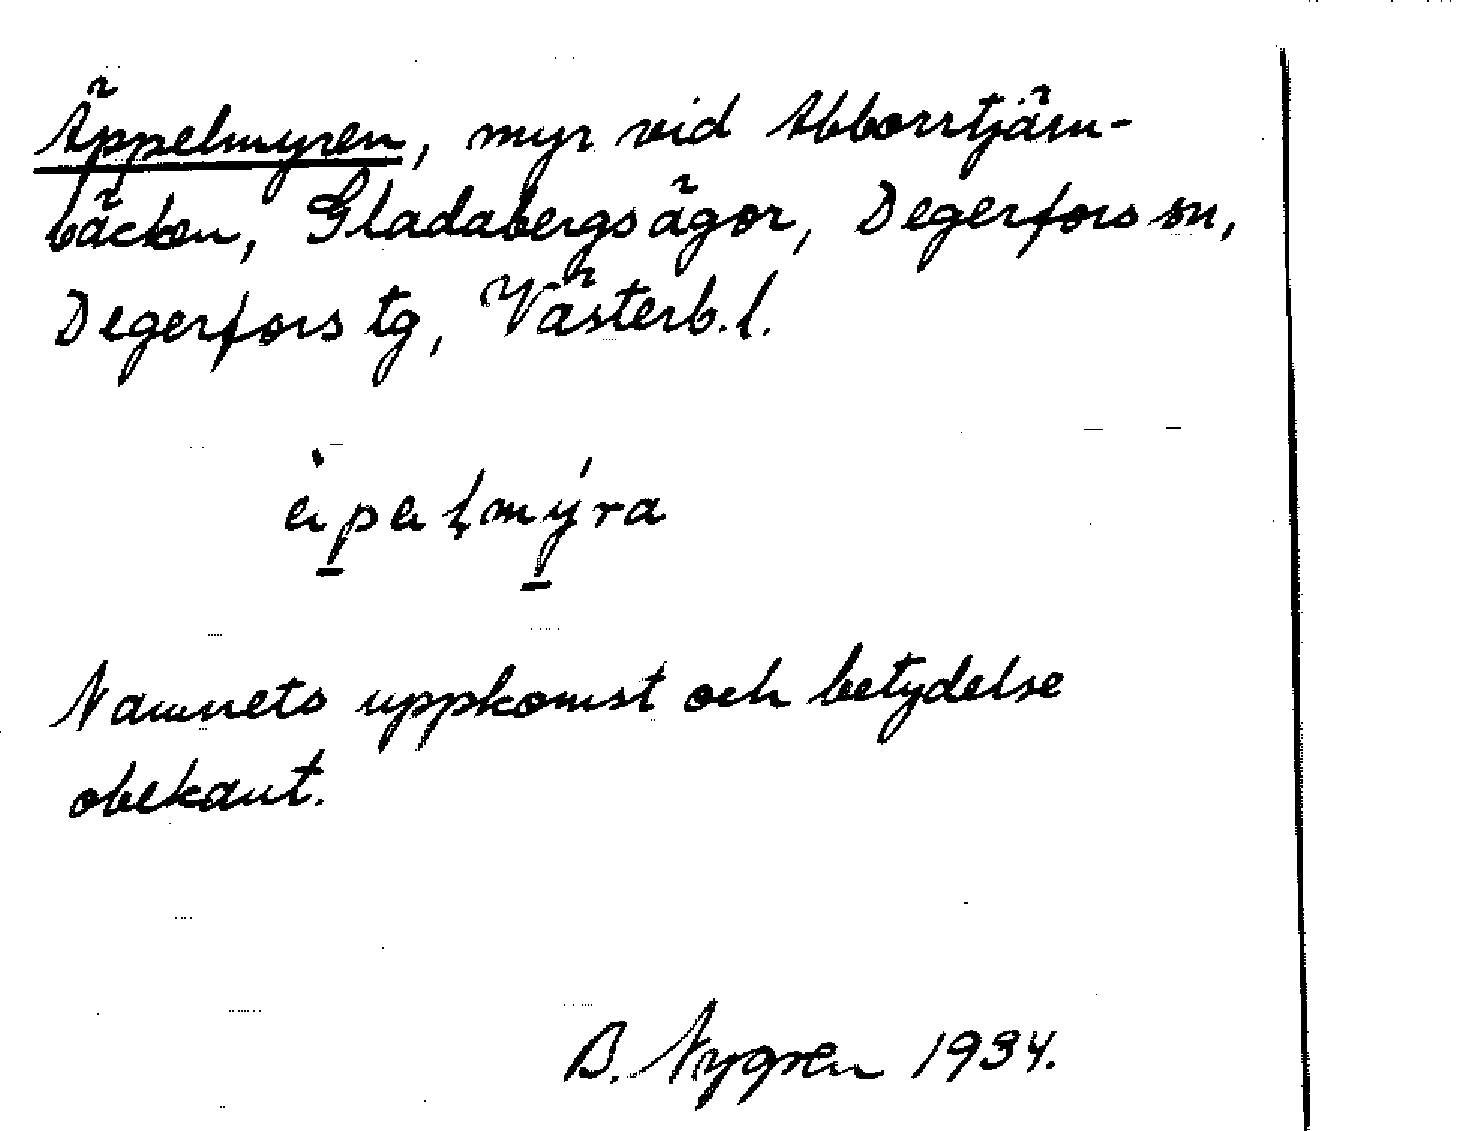 Äppelmyren, myr vid Abborrtjärn-
bäcken, Gladabergs ägor, Degerfors sn,
Degerfors tg, Västerb. l.
Namnets uppkomst och betydelse
obekant.
B. Nygren 1934.